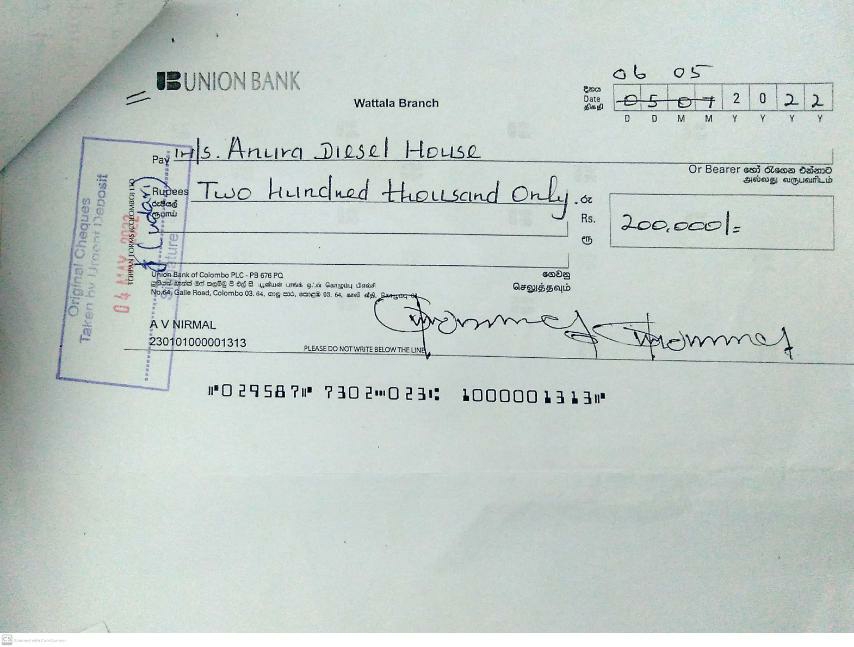 06 05
UNION BANK
Wattala Branch
දිනය
Date
திகதி
0 5 0 7 2 0 2 2
D D M M Y Y Y Y
Pay M/s. Anura Diesel House
Or Bearer හෝ රැගෙන එන්නාට
அல்லது வருபவரிடம்
Rupees Two hundred thousand Only.
රුපියල්
ரூபாய்
රු
Rs. 200,000/=
ரூ
Union Bank of Colombo PLC - PB 676 PQ
No.64, Galle Road, Colombo 03.
ගෙවනු
செலுத்தவும்
A V NIRMAL
230101000001313
PLEASE DO NOT WRITE BELOW THE LINE
029587 7302 023 1000001313
Original Cheques
Taken by Urgent Deposit
04 MAY 2022
Signature